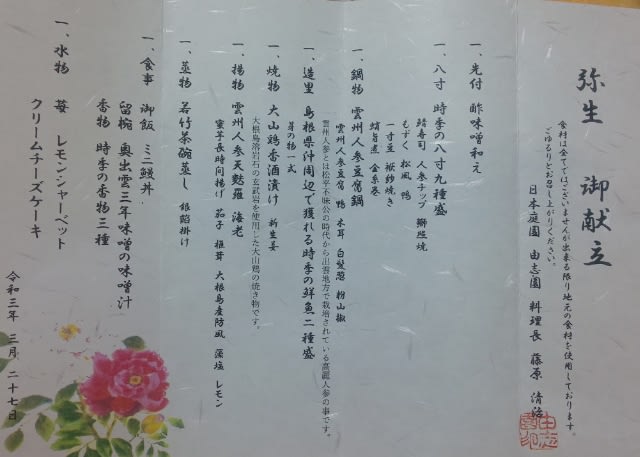 弥生 御献立
食材は全てではございませんが出来る限り地元の食材を使用しております。
ごゆるりとお召し上がりください。
日本庭園 由志園 料理長 藤原 清治
一、先付 酢味噌和え
一、八寸 時季の八寸九種盛
鯖寿司 人参チップ 鰤照焼
もずく 松風 鴨
一寸豆 袱紗焼き
鯖旨煮 金糸巻
一、鍋物 雲州人参豆腐鍋
雲州人参豆腐 鴨 木耳 白髪葱 粉山椒
雲州人参とは松平不昧公の時代から出雲地方で栽培されている高麗人参の事です。
一、造里 島根県沖周辺で獲れる時季の鮮魚二種盛
芽の物一式
一、焼物 大山鶏香酒漬け 新生姜
大根島溶岩石の玄武岩を使用した大山鶏の焼き物です。
一、揚物 雲州人参天麩羅 海老
蜜芋長時間揚げ 茄子 椎茸 大根島産防風 藻塩 レモン
一、蒸物 若竹茶碗蒸し 銀餡掛け
一、食事 御飯 ミニ鰻丼
留椀 奥出雲三年味噌の味噌汁
香物 時季の香物三種
一、水物 苺 レモンシャーベット
クリームチーズケーキ
令和三年 三月 二十七日
由志園印